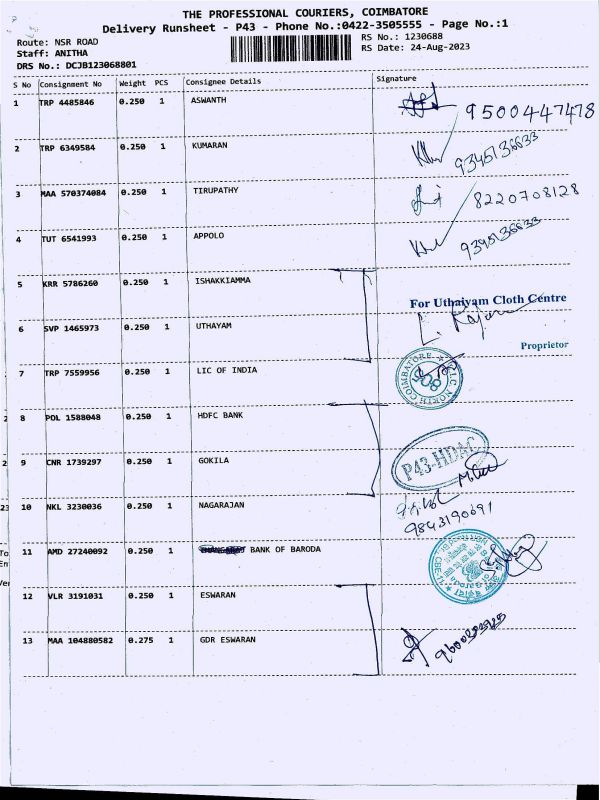 THE PROFESSIONAL COURIERS, COIMBATORE
Delivery Runsheet - P43 - Phone No.:0422-3505555 - Page No.:1
Route: NSR ROAD RS No.: 1230688
Staff: ANITHA RS Date: 24-Aug-2023
DRS No.: DCJB123068801
S No Consignment No Weight PCS Consignee Details Signature
1 TRP 4485846 0.250 1 ASWANTH 9500447478
2 TRP 6349584 0.250 1 KUMARAN 9345136633
3 MAA 570374084 0.250 1 TIRUPATHY 8220708128
4 TUT 6541993 0.250 1 APPOLO
5 KRR 5786260 0.250 1 ISHAKKIAMMA
For Uthaiyam Cloth Centre
6 SVP 1465973 0.250 1 UTHAYAM
Proprietor
7 TRP 7559956 0.250 1 LIC OF INDIA
8 POL 1588048 0.250 1 HDFC BANK
9 CNR 1739297 0.250 1 GOKILA P43-HDAC
10 NKL 3230036 0.250 1 NAGARAJAN
9843190691
11 AMD 27240092 0.250 1 BANK OF BARODA
12 VLR 3191031 0.250 1 ESWARAN
13 MAA 104880582 0.275 1 GDR ESWARAN